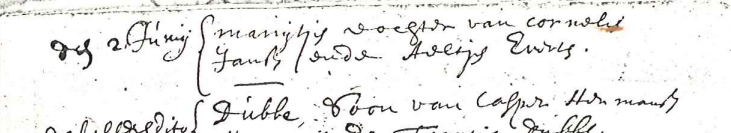 den 2. Junij { marijtis dochter van cornelis
Jansz ende Aeltje Everts.
Dubbe, Soon van Casper Hermansz
Dubbe.